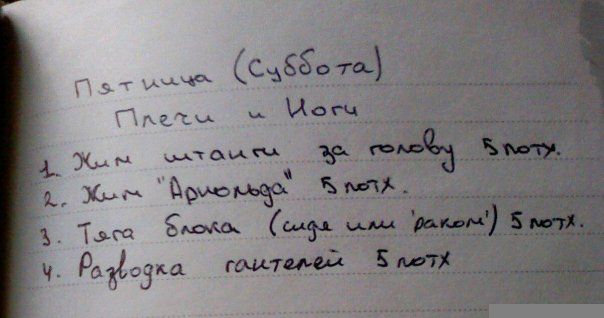 Пятница (Суббота)
Плечи и Ноги
1. Жим штанги за голову 5 потх.
2. Жим "Арнольда" 5 потх.
3. Тяга блока (сидя или 'раком') 5 потх.
4. Разводка гантелей 5 потх